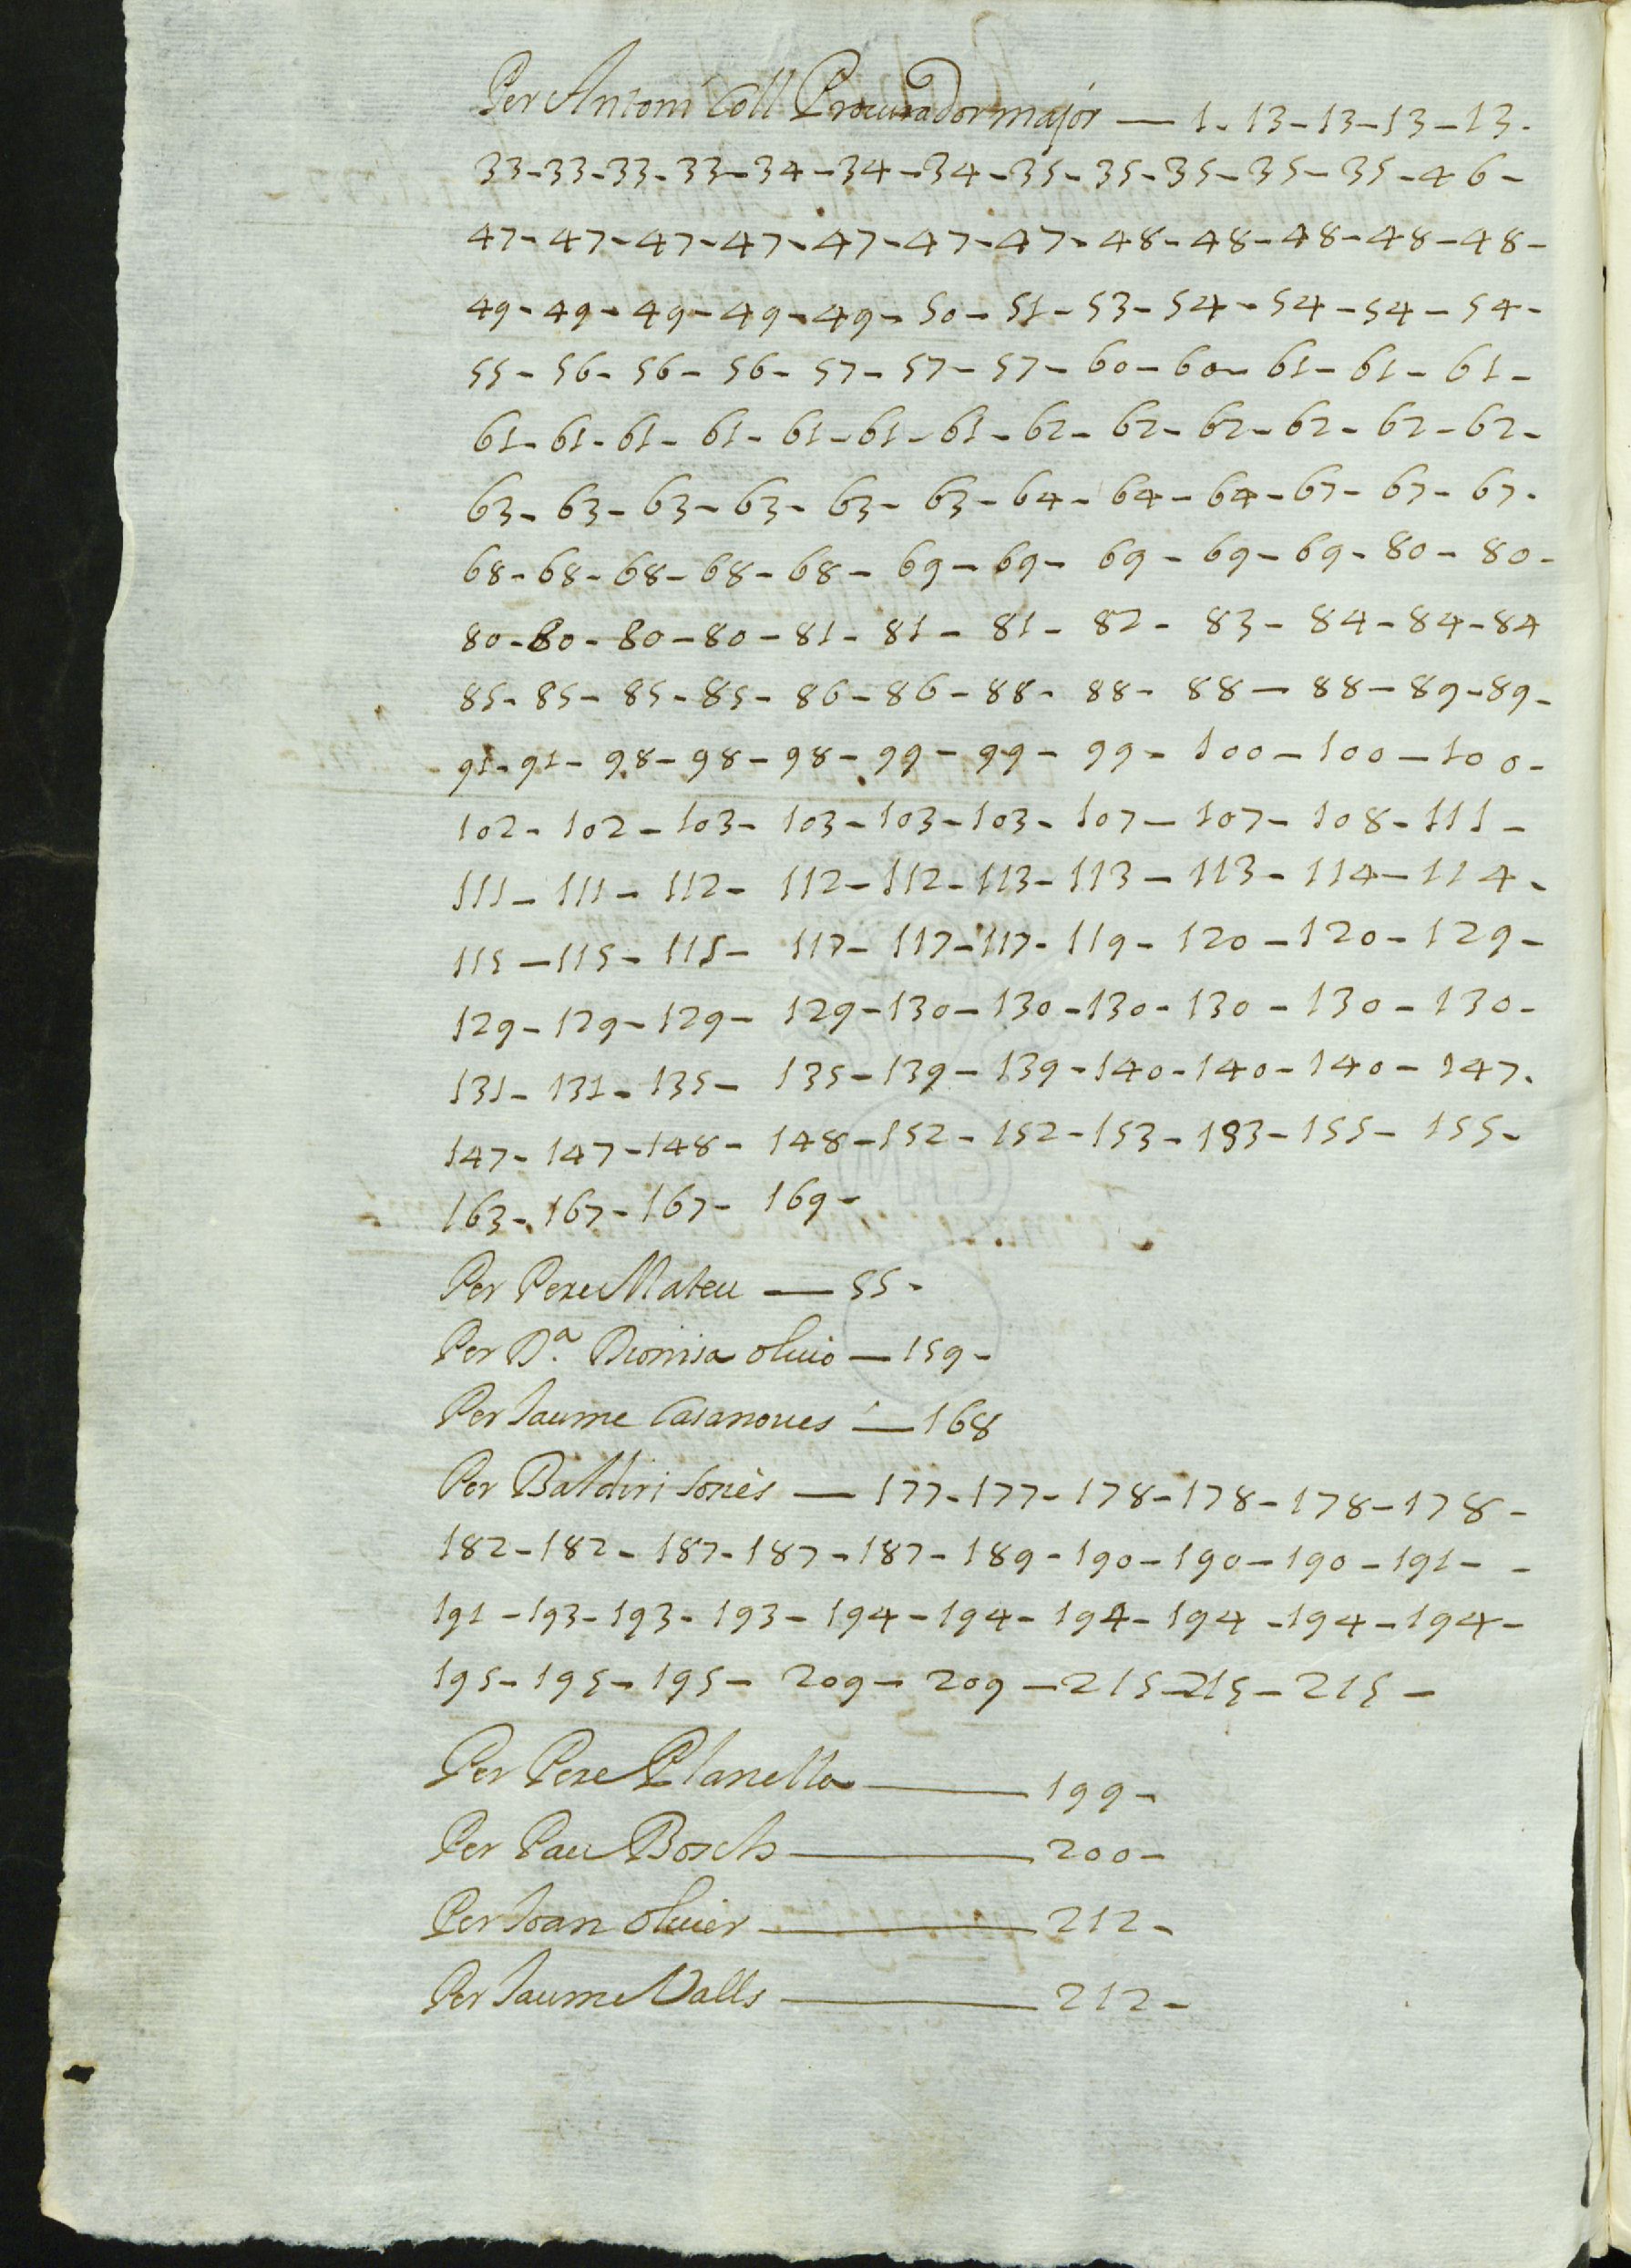 Per Antoni Coll Procurador major — 1. 13-13-13-13.
33-33-33-33-34-34-34-35-35-35-35-35-46-
47-47-47-47-47-47-47-48-48-48-48-48-
49-49-49-49-49-50-51-53-54-54-54-54-
55-56-56-56-57-57-57-60-60-61-61-61-
61-61-61-61-61-61-61-62-62-62-62-62-62-
63-63-63-63-63-63-64-64-64-67-67-67.
68-68-68-68-68-69-69-69-69-69-80-80-
80-80-80-80-81-81-81-82-83-84-84-84
85-85-85-85-86-86-88-88-88-88-89-89-
91-91-98-98-98-99-99-99-100-100-100-
102-102-103-103-103-103-107-107-108-111-
111-111-112-112-112-113-113-113-114-114-
115-115-115-117-117-117-119-120-120-129-
129-129-129-129-130-130-130-130-130-130-
131-131-135-135-139-139-140-140-140-147.
147-147-148-148-152-152-153-153-155-155-
163-167-167-169-
Per Pere Mateu — 55-
Per D.ª Dionisa oluio — 159-
Per Jaume Casanoues — 168
Per Baldiri — 177-177-178-178-178-178-
182-182-187-187-187-189-190-190-190-191- -
191-193-193-193-194-194-194-194-194-194-
195-195-195-209-209-215-215-215-
Per Pere Planella — 199-
Per Pau Bosch — 200-
Per Joan oluier — 212-
Per Jaume Valls — 212-